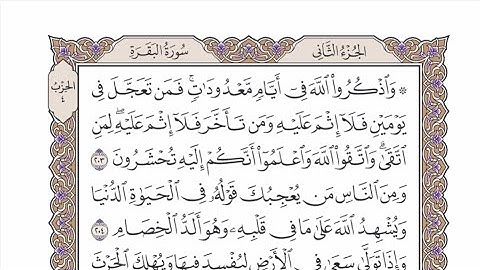 سُورَةُ الْبَقَرَةِ
الجُزْءُ الثَّانِي
الحِزْبُ
٤
۞ وَاذْكُرُوا اللَّهَ فِي أَيَّامٍ مَعْدُودَاتٍ فَمَن تَعَجَّلَ فِي
يَوْمَيْنِ فَلَا إِثْمَ عَلَيْهِ وَمَن تَأَخَّرَ فَلَا إِثْمَ عَلَيْهِ لِمَنِ
اتَّقَىٰ وَاتَّقُوا اللَّهَ وَاعْلَمُوا أَنَّكُمْ إِلَيْهِ تُحْشَرُونَ ٢٠٣
وَمِنَ النَّاسِ مَن يُعْجِبُكَ قَوْلُهُ فِي الْحَيَوٰةِ الدُّنْيَا
وَيُشْهِدُ اللَّهَ عَلَىٰ مَا فِي قَلْبِهِ وَهُوَ أَلَدُّ الْخِصَامِ ٢٠٤
وَإِذَا تَوَلَّىٰ سَعَىٰ فِي الْأَرْضِ لِيُفْسِدَ فِيهَا وَيُهْلِكَ الْحَرْثَ